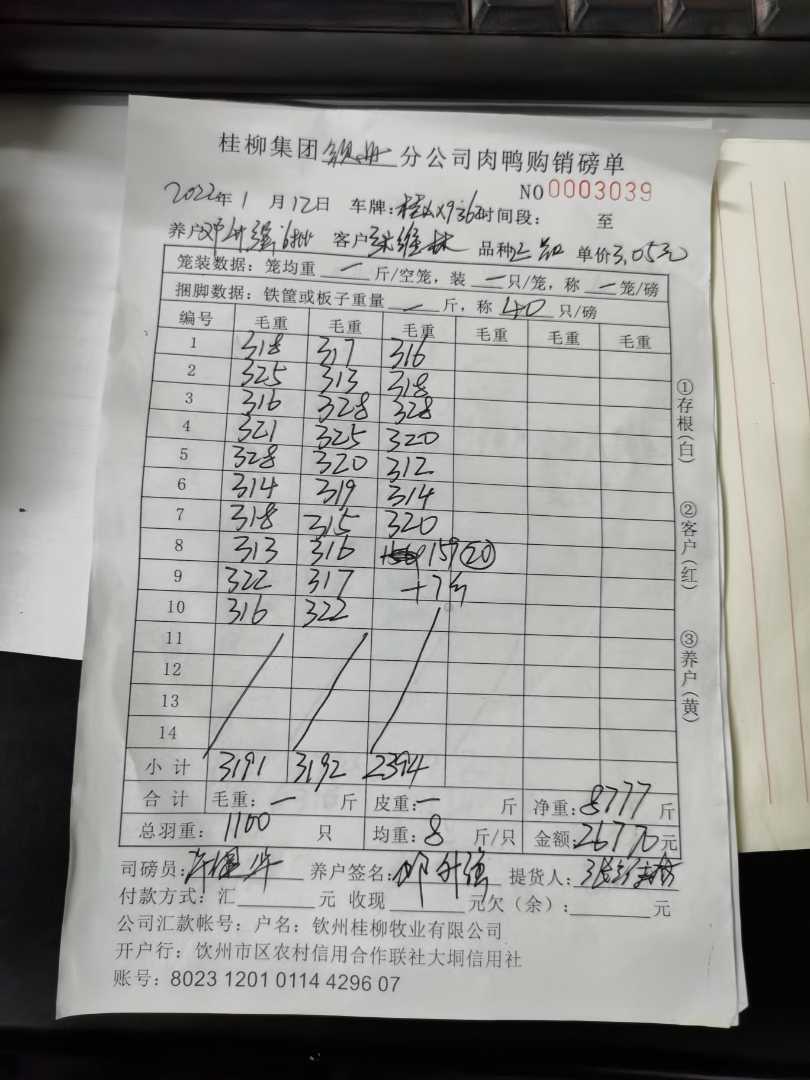 桂柳集团 钦州 分公司肉鸭购销磅单
NO 0003039
2022年 1 月 12日 车牌: 时间段: 至
养户 邓升强 客户 维林 品种 单价 3.05元
笼装数据: 笼均重 一 斤/空笼, 装 一 只/笼, 称 一 笼/磅
捆脚数据: 铁筐或板子重量 一 斤, 称 40 只/磅
编号 毛重 毛重 毛重 毛重 毛重 毛重
1 318 317 316
2 325 313 318
3 316 328 328
4 321 325 320
5 328 320 312
6 314 319 314
7 318 315 320
8 313 316 159 ⑳
9 322 317 +7
10 316 322
11
12
13
14
小计 3191 3192 2394
合计 毛重: 一 斤 皮重: 一 斤 净重: 8777 斤
总羽重: 1160 只 均重: 8 斤/只 金额: 26770 元
司磅员: 养户签名: 邓升强 提货人:
付款方式: 汇 元 收现 元欠(余): 元
公司汇款帐号: 户名: 钦州桂柳牧业有限公司
开户行: 钦州市区农村信用合作联社大垌信用社
账号: 8023 1201 0114 4296 07
①存根(白)
②客户(红)
③养户(黄)